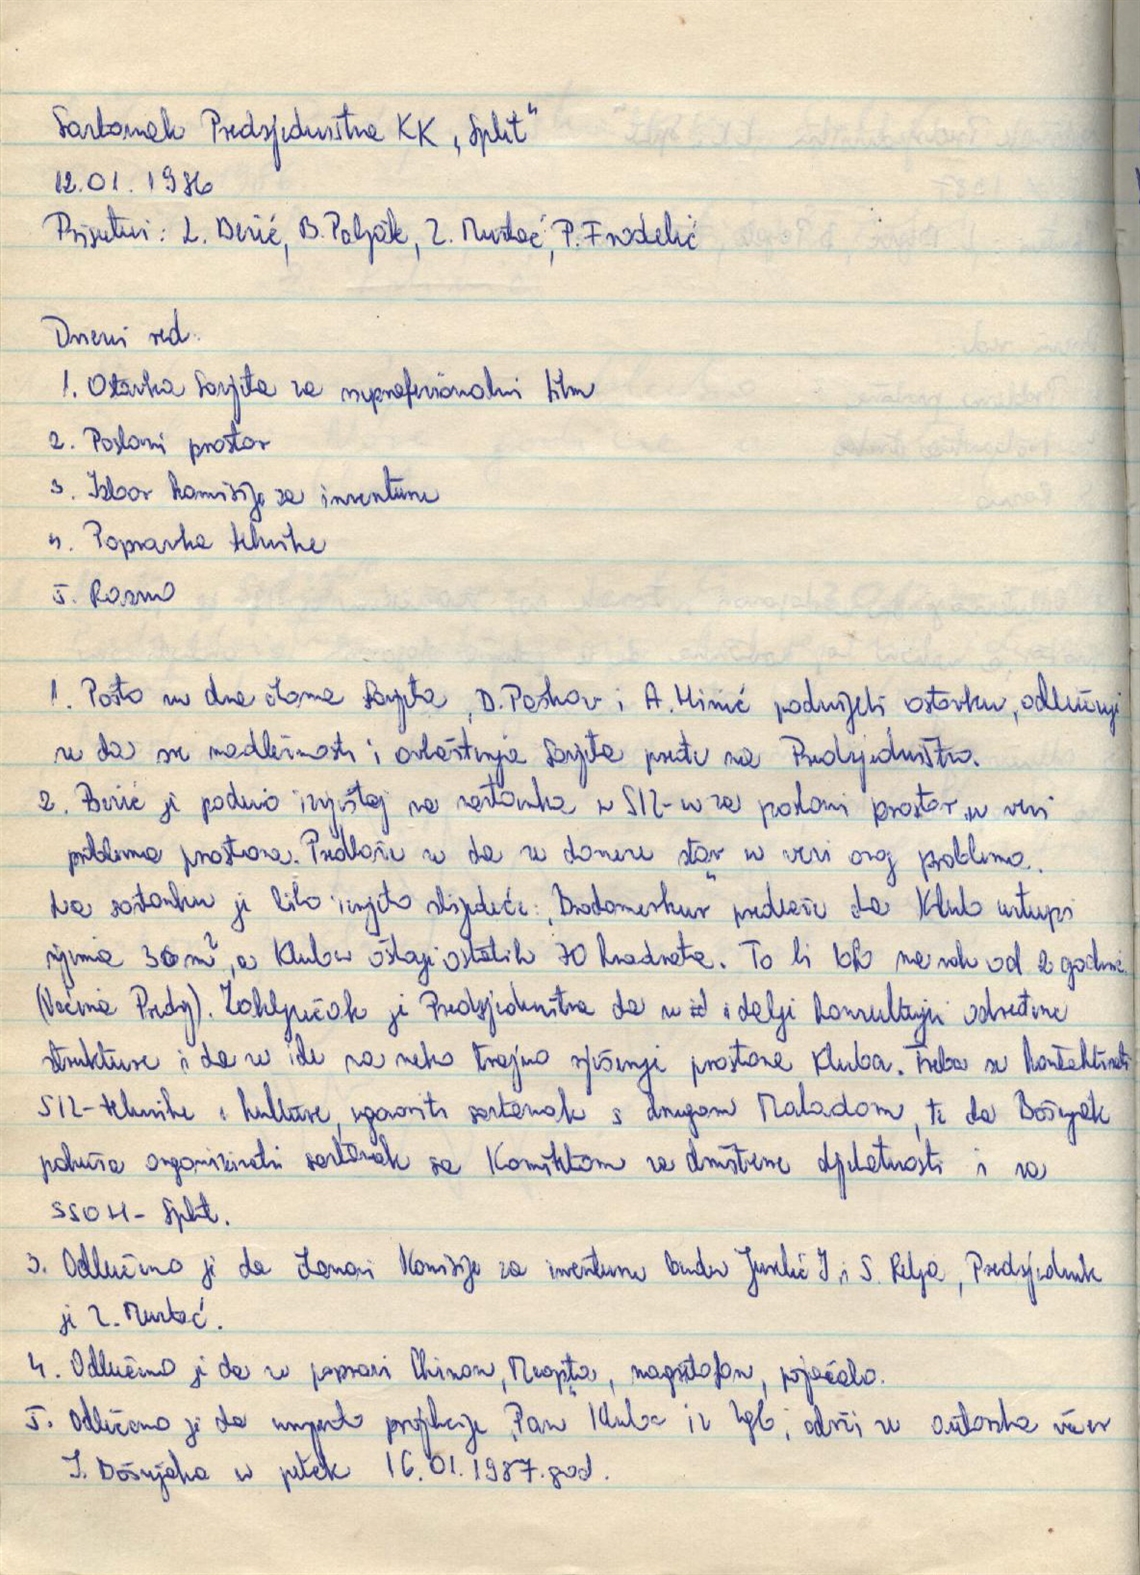 Sastanak Predsjedništva KK „Split“
12.01.1986
Prisutni: L. Berić, B. Poljak, Z. Mustać, P. Fradelić
Dnevni red:
1. Ostavka Savjeta za neprofesionalni film
2. Poslovni prostor
3. Izbor komisije za inventuru
4. Popravka tehnike
5. Razno
1. Pošto su dva člana Savjeta, D. Poshov i A. Mimić podnijeli ostavku, odlučuje
se da se nadležnosti i ovlaštenja Savjeta prenesu na Predsjedništvo.
2. Berić je podnio izvještaj sa sastanka u SIZ-u za poslovni prostor u vezi
problema prostora. Predlaže se da se donese stav u vezi ovog problema.
Na sastanku je bilo iznijeto slijedeće: „Brodomerkur“ predlaže da Klub ustupi
njima 30 m², a Klubu ostaje ostalih 70 kvadrata. To bi bilo na rok od 2 godine.
(Većina Predsj). Zaključak je Predsjedništva da se i dalje konsultuju određene
strukture i da se ide na neko trajno rješenje prostora Kluba. Treba se kontaktirati
SIZ-tehnike i kulture, ugovoriti sastanak s drugom Maladom, te da Bošnjak
pokuša organizirati sastanak sa Komitetom za društvene djelatnosti i sa
SSOH - Split.
3. Odlučeno je da članovi Komisije za inventuru budu Jurelić J. i S. Relja, Predsjednik
je Z. Mustać.
4. Odlučeno je da se popravi Chinon, Meopta, magnetofon, pojačalo.
5. Odlučeno je da umjesto projekcije „Pan Kluba iz Zgb“, održi se autorska večer
I. Bošnjaka u petak 16.01.1987. god.